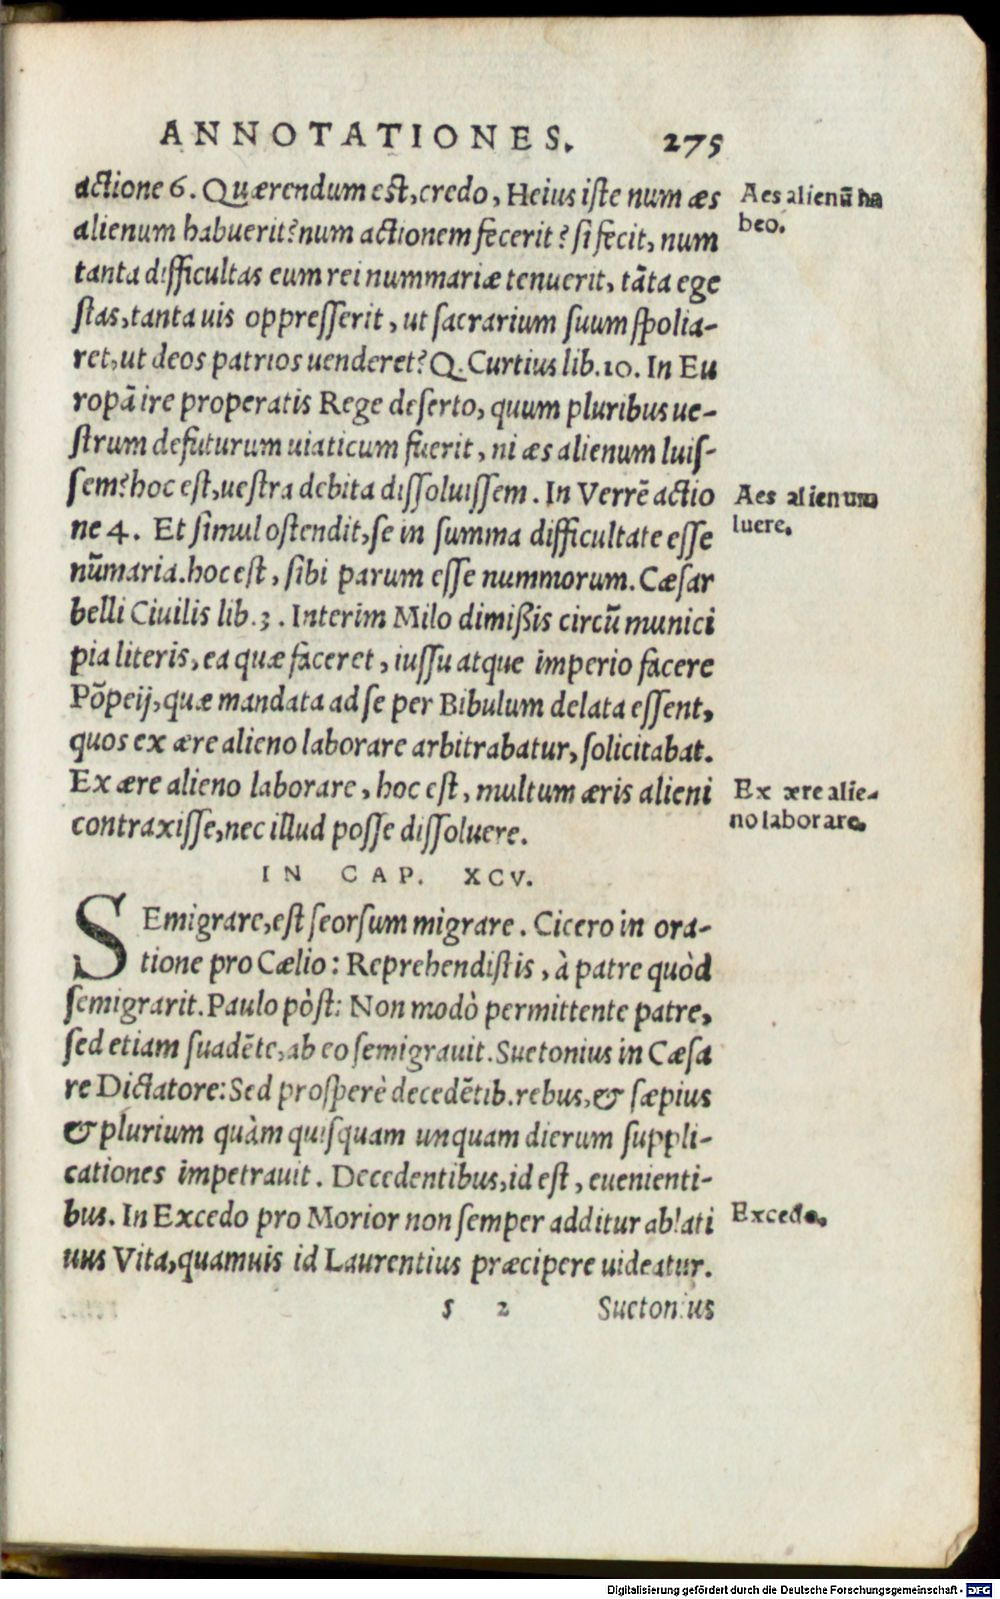 ANNOTATIONES. 275
actione 6. Quærendum est, credo, Heius iste num æs
alienum habuerit? num actionem fecerit? si fecit, num
tanta difficultas eum rei nummariæ tenuerit, tāta ege
stas, tanta uis oppresserit, ut sacrarium suum spolia-
ret, ut deos patrios uenderet? Q. Curtius lib. 10. In Eu
ropā ire properatis Rege deserto, quum pluribus ue-
strum defuturum uiaticum fuerit, ni æs alienum luis-
sem? hoc est, uestra debita dissoluissem. In Verrē actio
ne 4. Et simul ostendit, se in summa difficultate esse
nūmaria. hoc est, sibi parum esse nummorum. Cæsar
belli Ciuilis lib. 3. Interim Milo dimißis circū munici
pia literis, ea quæ faceret, iussu atque imperio facere
Pōpeij, quæ mandata ad se per Bibulum delata essent,
quos ex ære alieno laborare arbitrabatur, solicitabat.
Ex ære alieno laborare, hoc est, multum æris alieni
contraxisse, nec illud posse dissoluere.
Aes alienū ha
beo.
Aes alienum
luere.
Ex ære alie-
no laborare.
IN CAP. XCV.
SEmigrare, est seorsum migrare. Cicero in ora-
tione pro Cælio: Reprehendistis, à patre quòd
semigrarit. Paulo pòst: Non modò permittente patre,
sed etiam suadēte, ab eo semigrauit. Suetonius in Cæsa
re Dictatore: Sed prosperè decedētib. rebus, & sæpius
& plurium quàm quisquam unquam dierum suppli-
cationes impetrauit. Decedentibus, id est, euenienti-
bus. In Excedo pro Morior non semper additur ablati
uus Vita, quamuis id Laurentius præcipere uideatur.
Excedo.
s 2 Suetonius
Digitalisierung gefördert durch die Deutsche Forschungsgemeinschaft - DFG